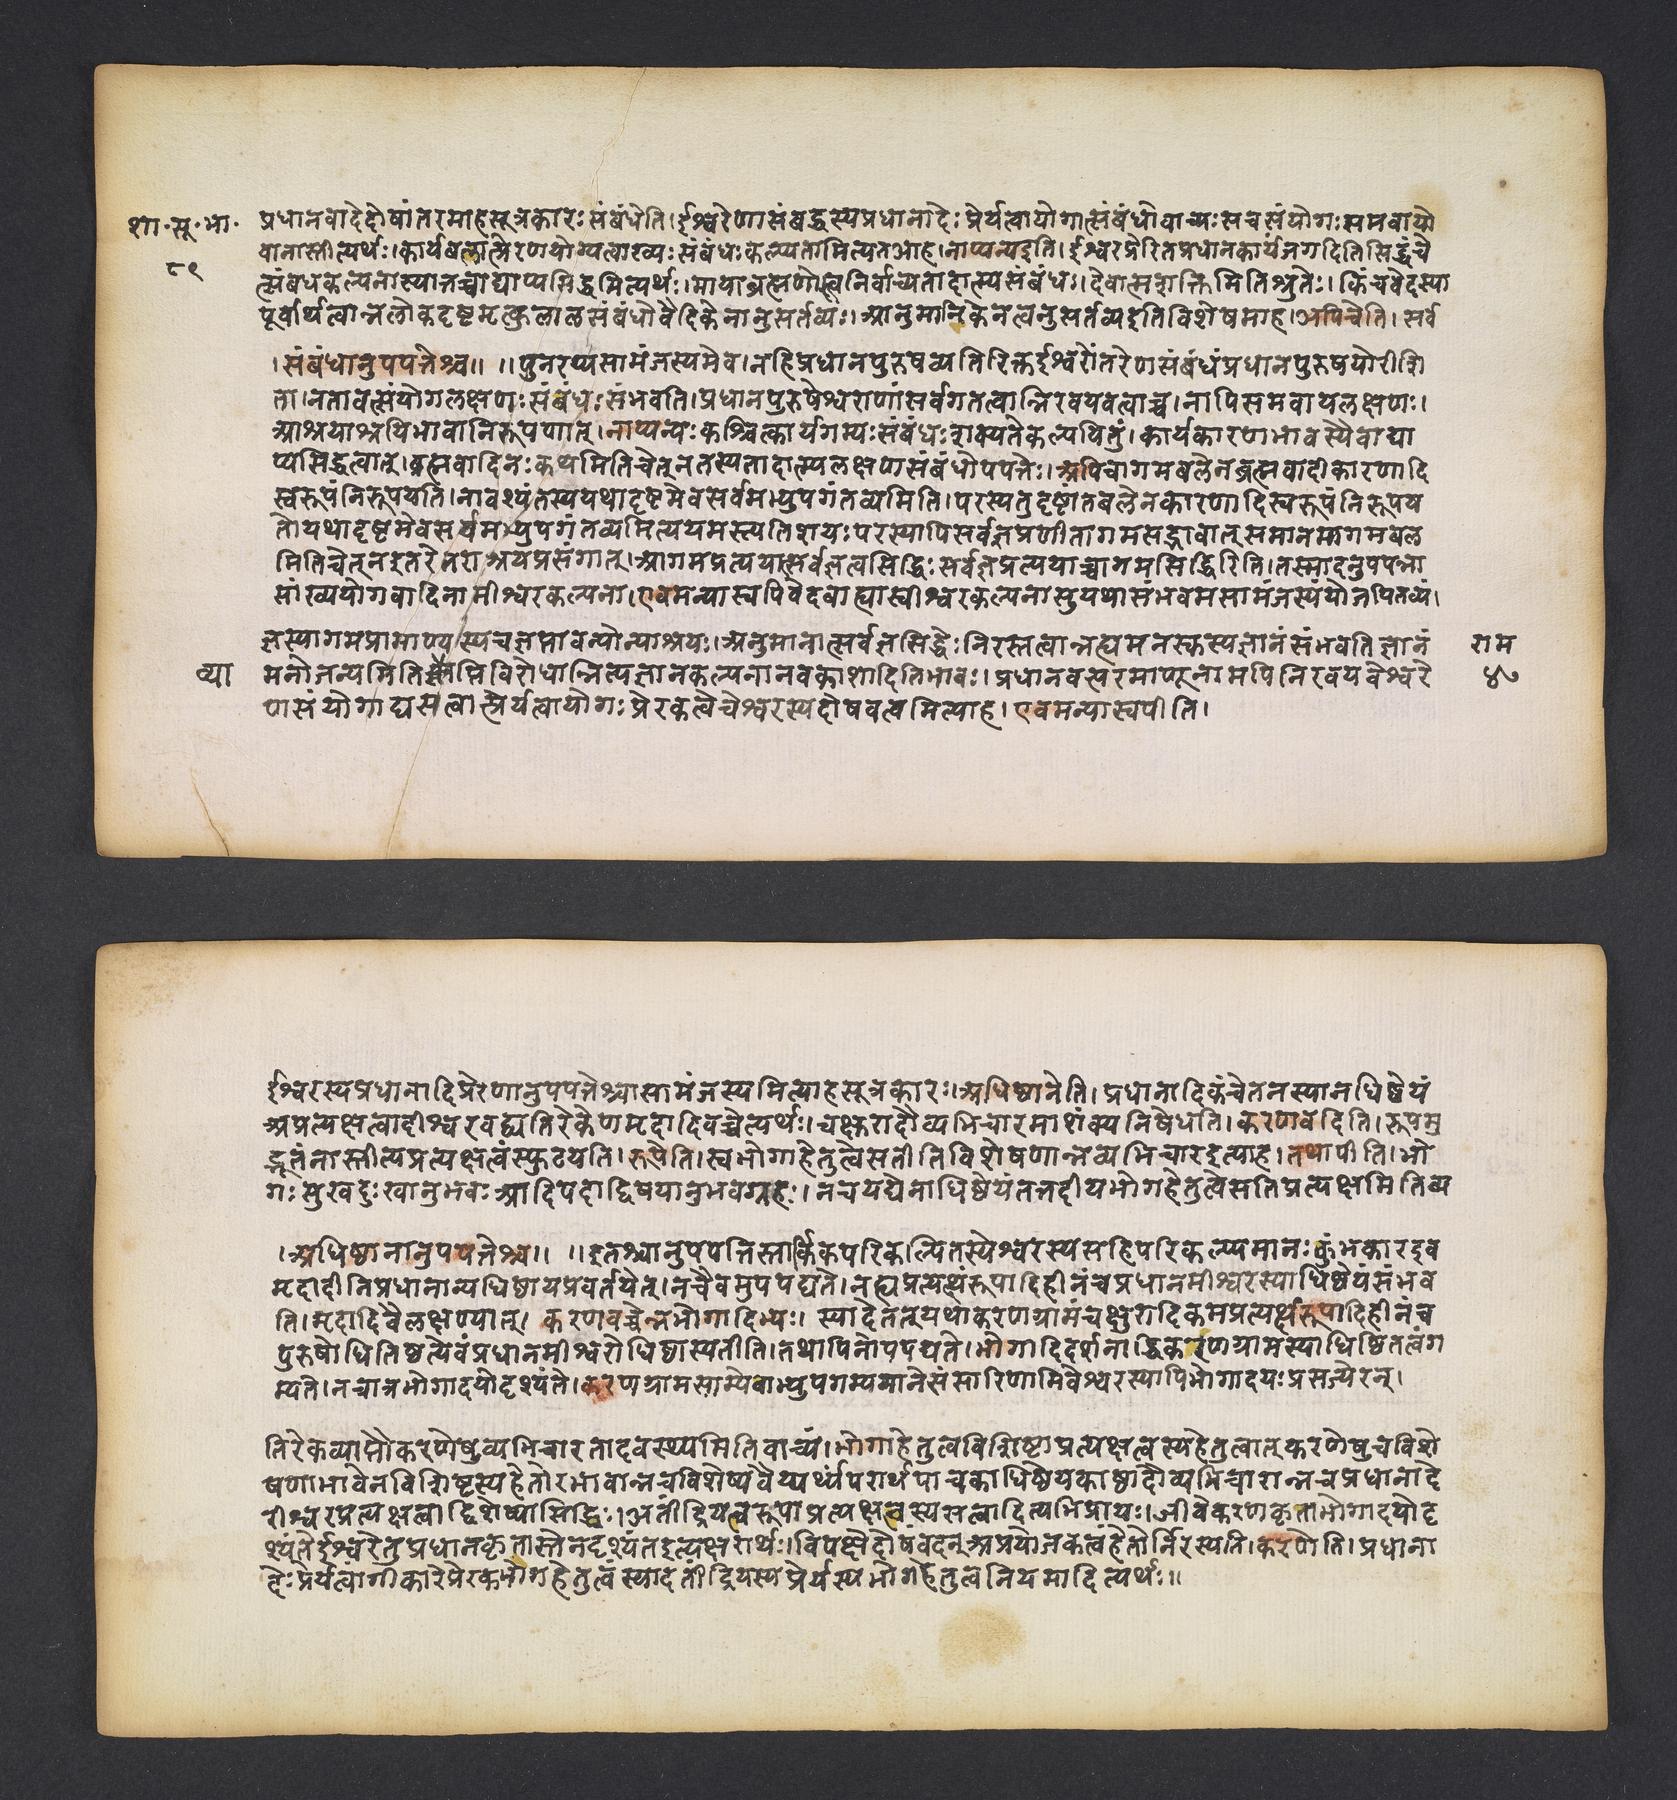 शा॰सू॰भा॰
८९
प्रधानवादेदोषांतरमाहसूत्रकारः संबंधेति।ईश्वरेणासंबद्धस्यप्रधानादेः प्रेर्यत्वायोगात्संबंधोवाच्यः सचसंयोगः समवायो
वानास्तीत्यर्थः।कार्यबलात्प्रेरणयोग्यत्वाख्यः संबंधः कल्प्यतामित्यतआह।नाप्यन्यइति।ईश्वरप्रेरितप्रधानकार्यंजगदितिसिद्धंचे
त्संबंधकल्पनास्यात्तच्चाद्याप्यसिद्धमित्यर्थः।मायाब्रह्मणोस्त्वनिर्वाच्यतादात्म्यसंबंधः।देवात्मशक्तिमितिश्रुतेः। किंचवेदस्या
पूर्वार्थत्वान्नलोकदृष्टमृत्कुलालसंबंधोवैदिकेनानुसर्तव्यः। आनुमानिकेनत्वनुसर्तव्यइतिविशेषमाह।अपिचेति। सर्व
।संबंधानुपपत्तेश्च॥ ॥पुनरप्यसामंजस्यमेव। नहिप्रधानपुरुषव्यतिरिक्तईश्वरोंतरेणसंबंधंप्रधानपुरुषयोरीशि
ता।नतावत्संयोगलक्षणः संबंधः संभवति। प्रधानपुरुषेश्वराणांसर्वगतत्वान्निरवयवत्वाच्च। नापिसमवायलक्षणः।
आश्रयाश्रयिभावानिरूपणात्।नाप्यन्यः कश्चित्कार्यगम्यः संबंधः शक्यतेकल्पयितुं। कार्यकारणभावस्यैवाद्या
प्यसिद्धत्वात्। ब्रह्मवादिनः कथमितिचेत्नतस्यतादात्म्यलक्षणसंबंधोपपत्तेः। अपिचागमबलेनब्रह्मवादीकारणादि
स्वरूपंनिरूपयति। नावश्यंतस्ययथादृष्टमेवसर्वमभ्युपगंतव्यमिति। परस्यतुदृष्टांतबलेनकारणादिस्वरूपंनिरूपय
तोयथादृष्टमेवसर्वमभ्युपगंतव्यमित्ययमस्त्यतिशयः परस्यापिसर्वज्ञप्रणीतागमसद्भावात्समानमागमबल
मितिचेत्नइतरेतराश्रयप्रसंगात्।आगमप्रत्ययात्सर्वज्ञत्वसिद्धिः सर्वज्ञप्रत्ययाच्चागमसिद्धिरिति।तस्मादनुपपन्ना
सांख्ययोगवादिनामीश्वरकल्पना।एवमन्यास्वपिवेदबाह्यास्वीश्वरकल्पनासुयथासंभवमसामंजस्यंयोजयितव्यं।
ज्ञस्यागमप्रामाण्यस्यचज्ञप्तावन्योन्याश्रयः।अनुमानात्सर्वज्ञसिद्धेः निरस्तत्वान्नह्यमनस्कस्यज्ञानंसंभवतिज्ञानं
राम
व्या
मनोजन्यमितिव्याप्तिविरोधान्नित्यज्ञानकल्पनानवकाशादितिभावः। प्रधानवत्परमाणूनामपिनिरवयवेश्वरे
४७
णसंयोगाद्यसत्वात्प्रेर्यत्वायोगः प्रेरकत्वेचेश्वरस्यदोषवत्वमित्याह। एवमन्यास्वपीति।
ईश्वरस्यप्रधानादिप्रेरणानुपपत्तेश्चासामंजस्यमित्याहसूत्रकारः।अधिष्ठानेति। प्रधानादिकंचेतनस्यानधिष्ठेयं
अप्रत्यक्षत्वादीश्वरवद्व्यतिरेकेणमृदादिवच्चेत्यर्थः। चक्षुरादौव्यभिचारमाशंक्यनिषेधति। करणवदिति। रूपमु
द्भूतंनास्तीत्यप्रत्यक्षत्वंस्फुटयति। रूपेति। स्वभोगाहेतुत्वेसतीतिविशेषणान्नव्यभिचारइत्याह।तथापीति। भो
गः सुखदुःखानुभवः आदिपदाद्विषयानुभवग्रहः। नचयद्येनाधिष्ठेयंतत्तदीयभोगहेतुत्वेसतिप्रत्यक्षमितिव्य
।अधिष्ठानानुपपत्तेश्च॥ ॥इतश्चानुपपत्तिस्तार्किकपरिकल्पितस्येश्वरस्यसहिपरिकल्प्यमानः कुंभकारइव
मृदादीनिप्रधानान्यधिष्ठायप्रवर्तयेत्। नचैवमुपपद्यते।नह्यप्रत्यक्षंरूपादिहीनंचप्रधानमीश्वरस्याधिष्ठेयंसंभव
ति। मृदादिवैलक्षण्यात्। करणवच्चेन्नभोगादिभ्यः। स्यादेतत्यथाकरणग्रामंचक्षुरादिकमप्रत्यक्षंरूपादिहीनंच
पुरुषोधितिष्ठत्येवंप्रधानमीश्वरोधिष्ठास्यतीति।तथापिनोपपद्यते।भोगादिदर्शनाद्धिकरणग्रामस्याधिष्ठितत्वंग
म्यते। नचात्रभोगादयोदृश्यंते। करणग्रामसाम्येवाभ्युपगम्यमानेसंसारिणामिवेश्वरस्यापिभोगादयः प्रसज्येरन्।
तिरेकव्याप्तौकरणेषुव्यभिचारतादवस्थ्यमितिवाच्यं।भोगाहेतुत्वविशिष्टाप्रत्यक्षत्वस्यहेतुत्वात्करणेषुचविशे
षणाभावेनविशिष्टस्यहेतोरभावान्नचविशेष्यवैयर्थ्यंपरार्थपाचकाधिष्ठेयकाष्ठादौव्यभिचारान्नचप्रधानादे
रीश्वरप्रत्यक्षत्वाद्विशेष्यासिद्धिः।अतींद्रियत्वरूपाप्रत्यक्षत्वस्यसत्वादित्यभिप्रायः।जीवेकरणकृताभोगादयोदृ
श्यंतेईश्वरेतुप्रधानकृतास्तेनदृश्यंतइत्यक्षरार्थः।विपक्षेदोषंवदन्अप्रयोजकत्वंहेतोर्निरस्यति।करणेति। प्रधाना
देः प्रेर्यत्वांगीकारेप्रेरकभोगहेतुत्वंस्यादतींद्रियस्यप्रेर्यस्यभोगहेतुत्वनियमादित्यर्थः॥